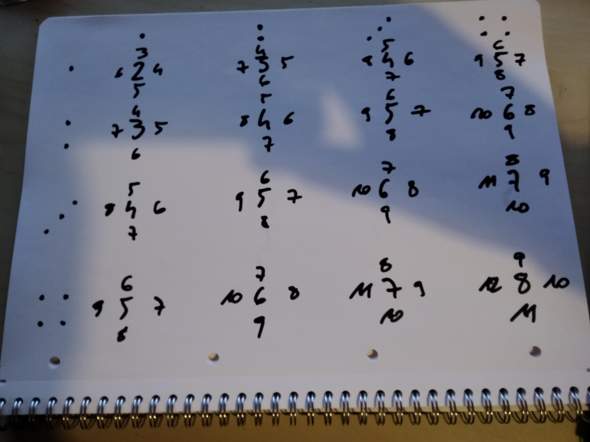 3 4 5 6
6 2 4 7 3 5 8 4 6 9 5 7
5 6 7 8
4 5 6 7
7 3 5 8 4 6 9 5 7 10 6 8
6 7 8 9
5 6 7 8
8 4 6 9 5 7 10 6 8 11 7 9
7 8 9 10
6 7 8 9
9 5 7 10 6 8 11 7 9 12 8 10
8 9 10 11